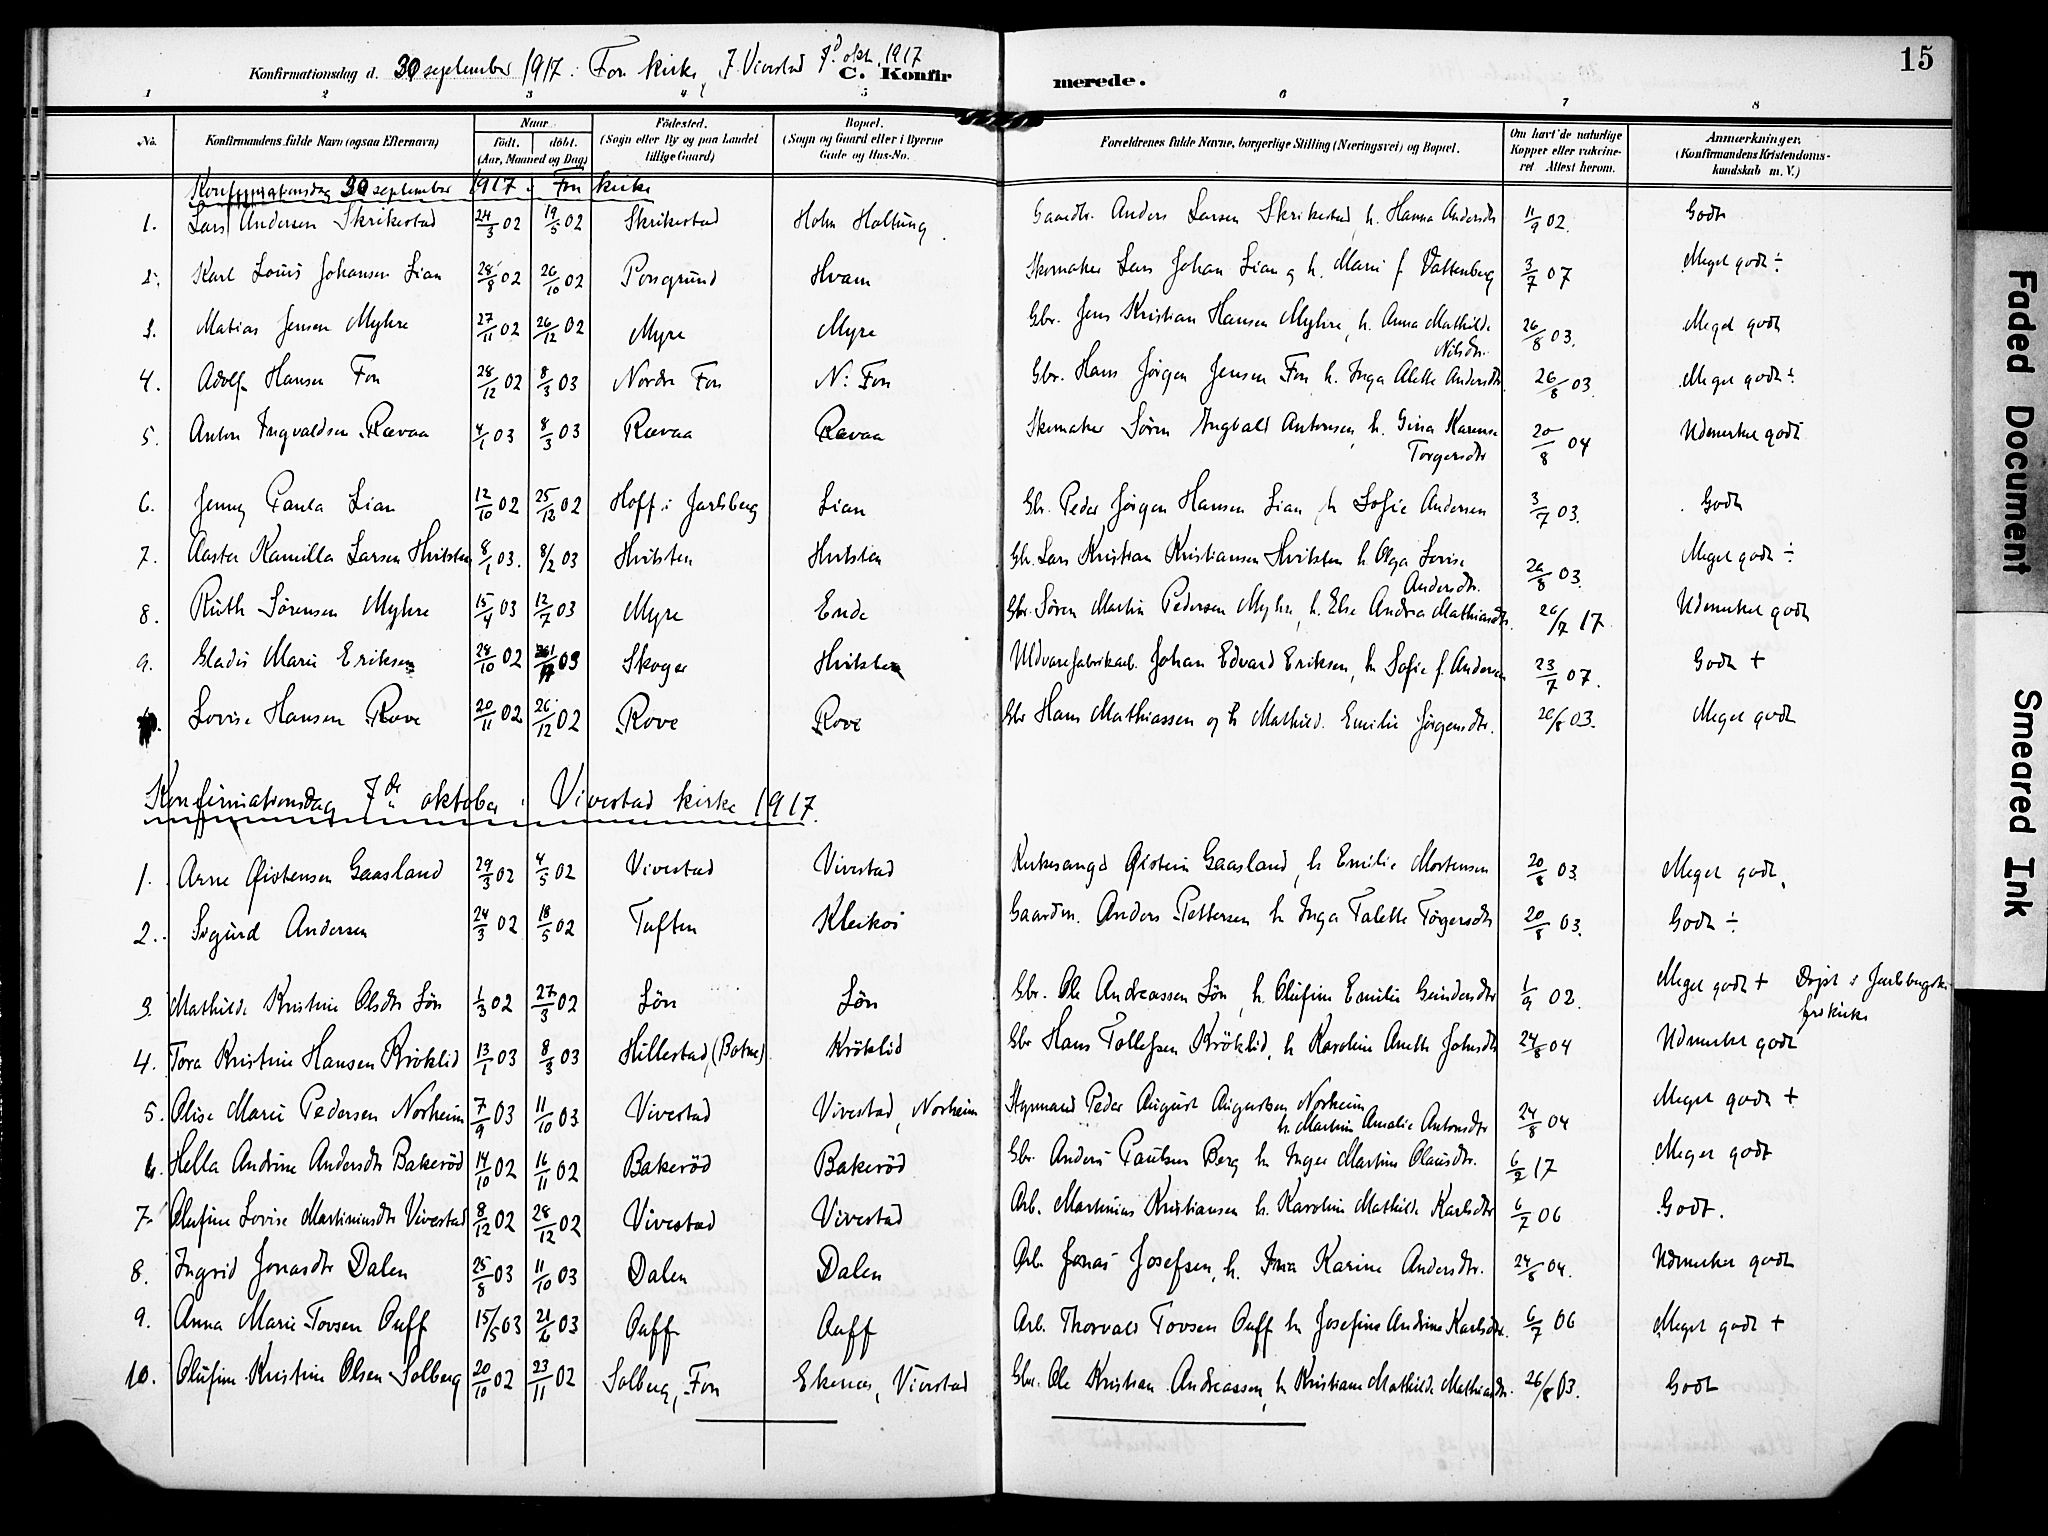 Konfirmationsdag d. 30 september 1917 i Fon kirke, I Vivestad 7d okt. 1917
C. Konfirmerede.
15
1 2 3 4 5 6 7 8
No. Konfirmandens fulde Navn (ogsaa Efternavn) Naar født. døbt. (Aar, Maaned og Dag) Fødested. (Sogn eller By og paa Landet tillige Gaard) Bopæl. (Sogn og Gaard eller i Byerne Gade og Hus-No. Forældrenes fulde Navne, borgerlige Stilling (Næringsvei) og Bopæl. Om havt de naturlige Kopper eller vakcineret Attest herom. Anmærkninger. (Konfirmandens Kristendomskundskab m. V.)
Konfirmationsdag 30 september 1917 i Fon kirke
1. Lars Andersen Skrikestad 24/3 02 19/5 02 Skrikestad Holm Haltung Gaardbr. Anders Larsen Skrikestad, h. Hanna Andersdtr 11/9 02. Godt
2. Karl Louis Johansen Lian 28/8 02 26/10 02 Porsgrund Hvam Skomaker Lars Johan Lian og h. Marie f. Vattenberg 3/7 07 Meget godt ÷
3. Matias Jensen Myhre 27/11 02 26/12 02 Myre Myre Gbr. Jens Kristian Hansen Myhre, h. Anna Mathilde Nilsdtr. 26/8 03. Meget godt
4. Adolf Hansen Fon 28/12 02 8/3 03 Nordre Fon N: Fon Gbr. Hans Jørgen Jensen Fon h. Inga Alette Andersdtr. 26/8 03. Meget godt ÷
5. Anton Ingvaldsen Rævaa 4/1 03 8/3 03 Rævaa Rævaa Skomaker Søren Ingvald Antonsen, h. Gina Karense Torgersdtr 20/8 04 Udmerket godt
6. Jenny Paula Lian 12/10 02 25/12 02 Hoff i Jarlsberg Lian Gbr. Peder Jørgen Hansen Lian, h Sofie Andersen 3/7 03. Godt
7. Aasta Kamilla Larsen Hvitsten 8/1 03. 8/2 03 Hvitsten Hvitsten Gbr. Lars Kristian Kristiansen Hvitsten h. Olga Lovise Andersdtr. 26/8 03. Meget godt ÷
8. Ruth Sørensen Myhre 15/4 03 12/7 03 Myre Ende Gbr. Søren Martin Pedersen Myhre, h. Else Andrea Mathiasdtr. 26/7 17 Udmerket godt
9. Gladis Marie Eriksen 28/10 02 03 Skoger Hvitsten Uldvarefabrikarb. Johan Edvard Eriksen, h. Sofie f. Andersen 23/7 07. Godt +
10. Lovise Hansen Rove 20/11 02 26/12 02 Rove Rove Gbr Hans Mathiassen og h Mathild. Emilie Jørgensdtr. 26/8 03. Meget godt
Konfirmationsdag 7de oktober i Vivestad kirke 1917.
1. Arne Øistensen Gaasland 29/3 02 4/5 02 Vivestad Vivestad Kirkesanger Øistein Gaasland, h Emilie Mortensen 20/8 03. Meget godt.
2. Sigurd Andersen 24/3 02 18/5 02 Tuften Kleikoi Gaardm. Anders Pettersen h Inga Talette Torgersdtr 20/8 03. Godt ÷
3. Mathilde Kristine Olsdtr Løn 1/3 02 27/3 02 Løn Løn Gbr. Ole Andreassen Løn, h. Olufine Emilie Gundersdtr 1/9 02. Meget godt + Døpt i Jarlsbergske frikirke
4. Tora Kristine Hansen Krøklid 13/1 03 8/3 03 Hillestad, (Botne) Krøklid Gbr Hans Tollefsen Krøklid, h Karoline Anette Johsdtr 24/8 04 Udmerket godt
5. Olise Marie Pedersen Norheim 7/9 03 11/10 03 Vivestad Vivestad, Norheim Styrmand Peder August Augustsen Norheim h. Martine Amalie Antonsdtr 24/8 04 Meget godt +
6. Hella Andrine Andersdtr Bakerød 14/10 02 16/11 02 Bakerød Bakerød Gbr. Anders Paulsen Berg h Inger Martine Olausdtr. 6/2 17 Meget godt
7. Olufine Lovise Martiniusdtr Vivestad 8/12 02 28/12 02 Vivestad Vivestad Arb. Martinius Kristiansen h. Karoline Mathilde Karlsdtr 6/7 06 Godt.
8. Ingrid Jonasdtr Dalen 25/8 03 11/10 03 Dalen Dalen Arb. Jonas Josefsen, h. Ina Karine Andersdtr. 24/8 04. Udmerket godt
9. Anna Marie Tovsen Auff 15/5 03 21/6 03 Auff Auff Arb. Thorvald Tovsen Auff h Josefine Andrine Karlsdtr. 6/7 06 Meget godt +
10. Olufine Kristine Olsen Solberg 20/10 02 23/11 02 Solberg, Fon Ekenes, Vivestad Gbr. Ole Kristian Andreassen, h Kristiane Mathilde Mathiasdtr. 26/8 03. Godt
Faded Document
Smeared Ink